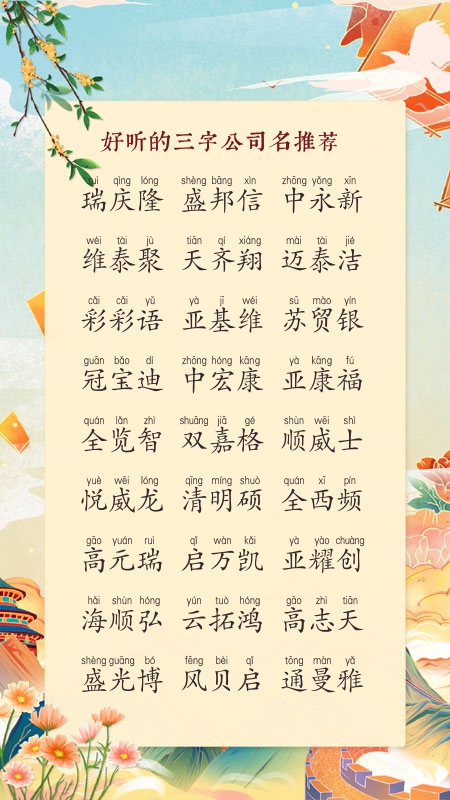 好听的三字公司名推荐
ruì qìng lóng shèng bāng xìn zhōng yǒng xīn
瑞庆隆 盛邦信 中永新
wéi tài jù tiān qí xiáng mài tài jié
维泰聚 天齐翔 迈泰洁
cǎi cǎi yǔ yà jī wéi sū mào yín
彩彩语 亚基维 苏贸银
guān bǎo dí zhōng hóng kāng yà kāng fú
冠宝迪 中宏康 亚康福
quán lǎn zhì shuāng jiā gé shùn wēi shì
全览智 双嘉格 顺威士
yuè wēi lóng qīng míng shuò quán xī pín
悦威龙 清明硕 全西频
gāo yuán ruì qǐ wàn kǎi yà yào chuàng
高元瑞 启万凯 亚耀创
hǎi shùn hóng yún tuò hóng gāo zhì tiān
海顺弘 云拓鸿 高志天
shèng guāng bó fēng bèi qǐ tōng màn yǎ
盛光博 风贝启 通曼雅